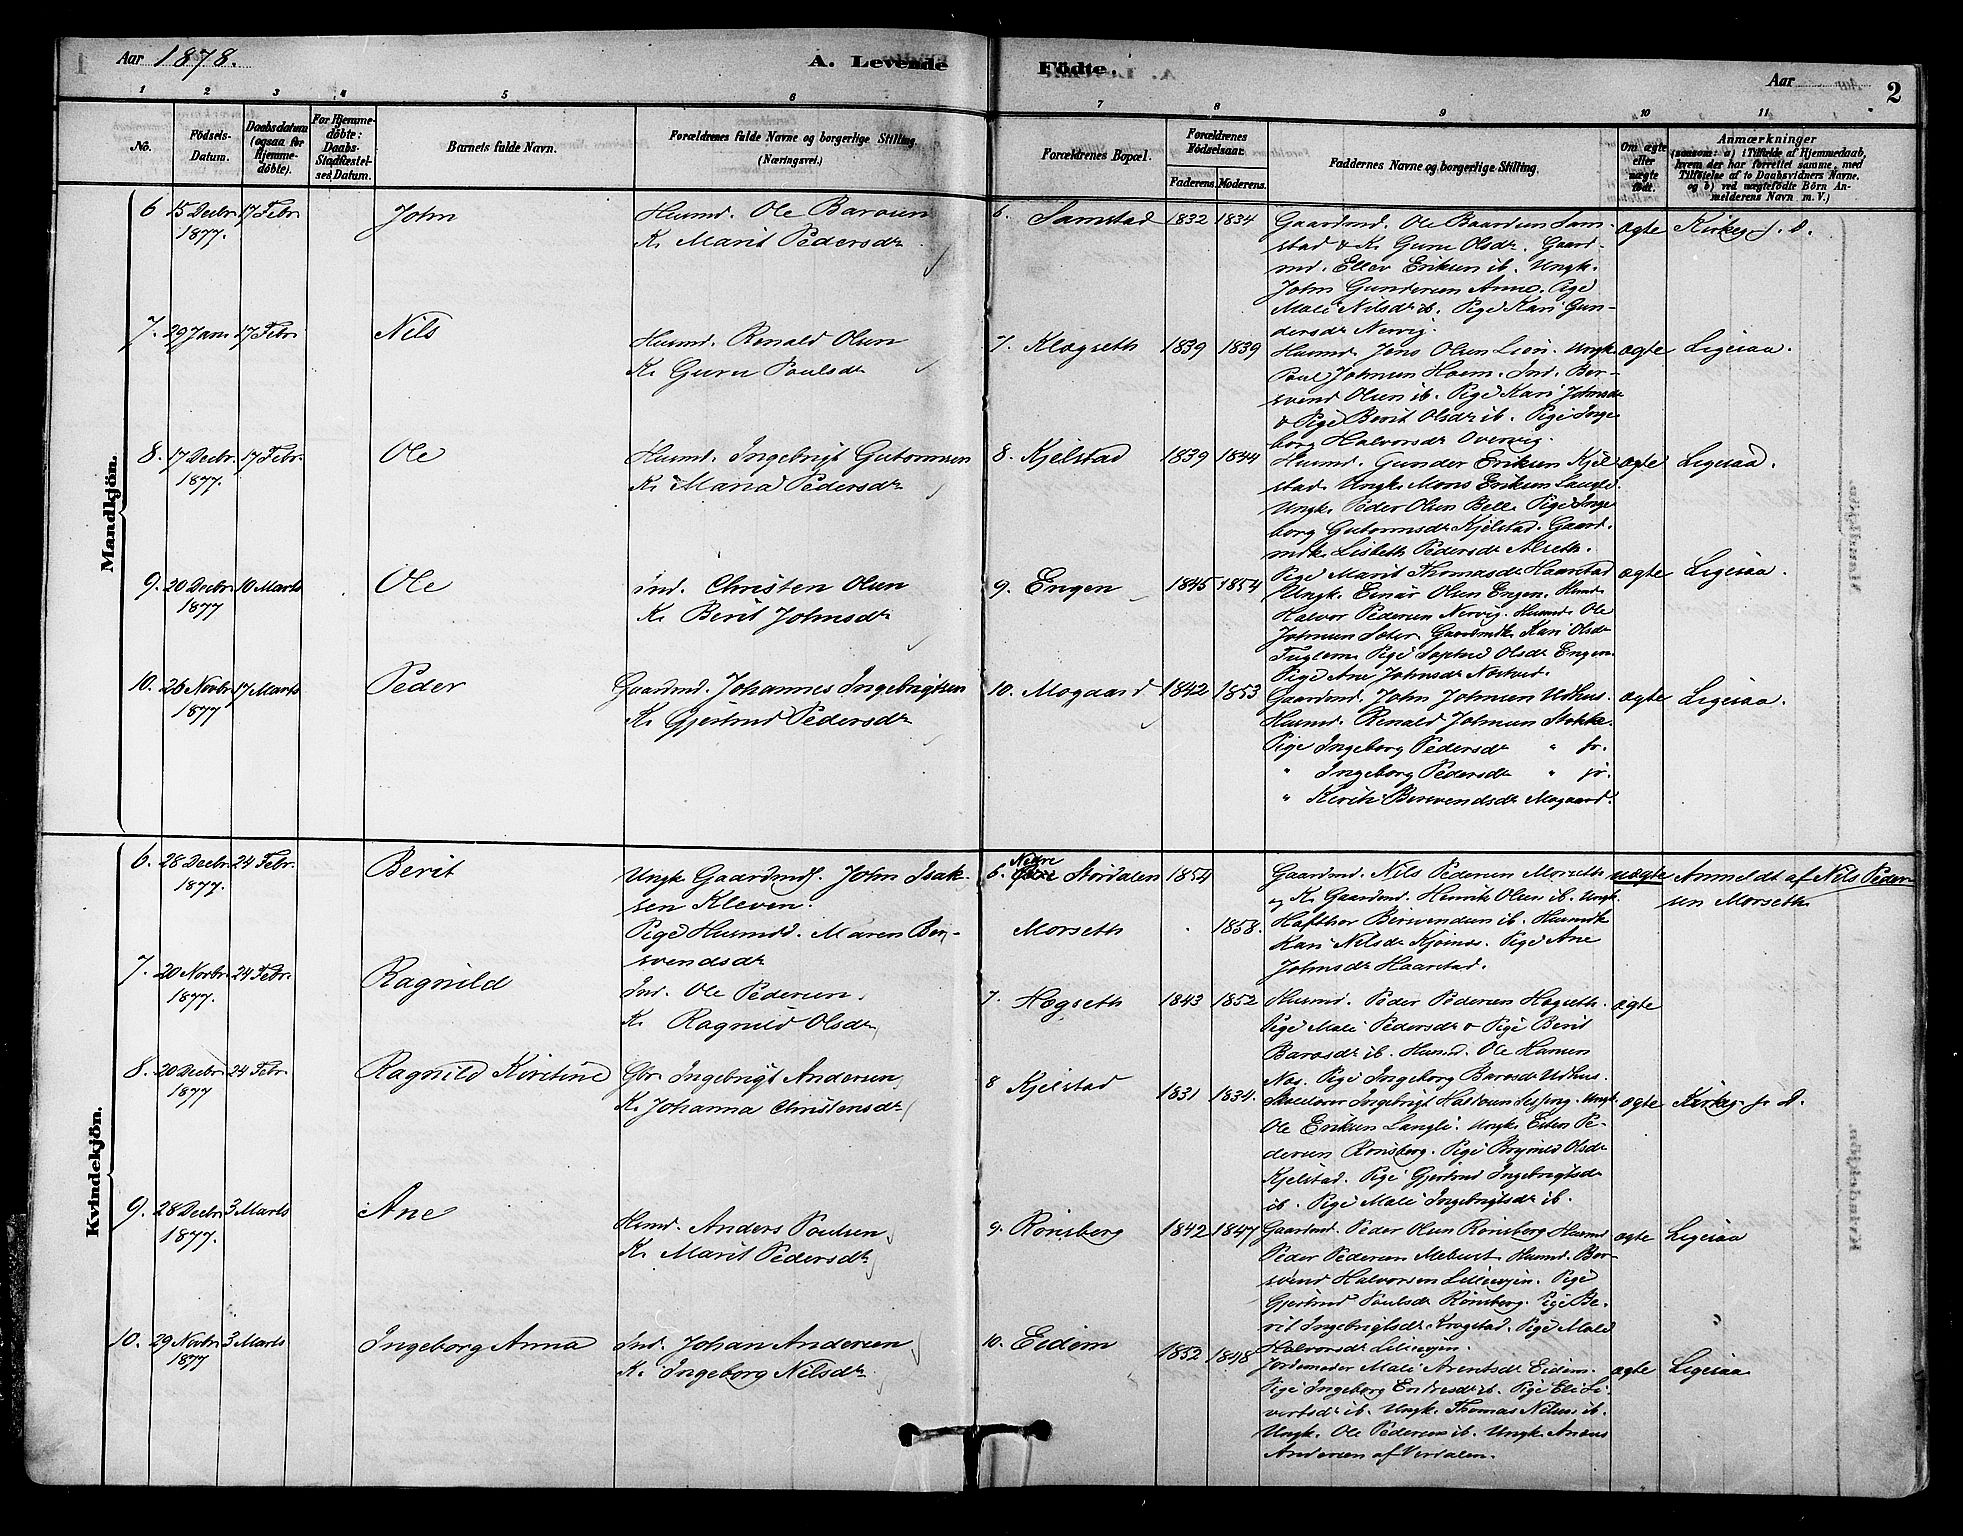 Aar 1878.
A. Levende
Födte.
Aar
2
1 2 3 4 5 6 7 8 9 10 11
No.
Födsels-Datum.
Daabsdatum (ogsaa for Hjemme-döbte).
For Hjemme-döbte: Daabs-Stadfæstel-ses Datum.
Barnets fulde Navn.
Forældrenes fulde Navne og borgerlige Stilling (Næringsvei.)
Forældrenes Bopæl.
Forældrenes Födselsaar.
Faderens. Moderens.
Faddernes Navne og borgerlige Stilling.
Om ægte eller uægte födt.
Anmærkninger
(saasom: a) i Tilfælde af Hjemmedaab, hvem der har forrettet samme, med Tilföielse af to Daabsvidners Navne. og b) ved uægtefödte Börn An-melderens Navn m. V.)
Mandkjön.
6 15 Decbr 1877. 17 Febr John
Husmd. Ole Baroien
K. Marit Pedersdr
6. Samstad 1832 1834
Gaardmd. Ole Baardsen Sam-
stad & K. Guru Olsdr. Gaard-
md. Ellev Eriksen ib. Ungk.
John Gundersen Anno. Pige
Mali Nilsdr ib. Pige Kari Gun-
dersdr Nervig.
ægte Kirkeg. f. D.
7. 29 Jan 17 Febr Nils
Husmd. Renald Olsen
K. Guru Poulsdr
7. Klogseth 1839 1839
Husmd. Jens Olsen Lien. Ungk.
Poul Johnsen Hoem. Ind. Ber-
svend Olsen ib. Pige Kari Johnsdr
& Pige Berit Olsdr ib. Pige Inge-
borg Halvorsdr Overvig.
ægte Ligesaa.
8. 17 Decbr. 1877. 17 Febr. Ole
Husmd. Ingebrigt Gutormsen
K. Maria Pedersdr
8. Kjelstad 1839 1844
Husmd. Gunder Eriksen Kjel
stad. Ungk. Mons Eriksen Langli.
Ungk. Peder Olsen Bell. Pige Inge
borg Gutormsdr Kjelstad. Gaard.
mdk. Lisbeth Pedersdr Alseth.
ægte Ligesaa.
9. 20 Decbr 1877 10 Marts Ole
Ind. Christen Olsen
K. Berit Johnsdr
9. Engen 1845 1854
Pige Marit Thomasdr Haarstad
Ungk. Einar Olsen Engen. Husmd.
Halvor Pedersen Nervig. Husmd. Ole
Johnsen Sater. Gaardmdk Kari Olsdr
Fuglem. Pige Olsdr Engen.
Pige Ane Johnsdr
ægte Ligesaa.
10. 26 Novbr 1877 17 Marts Peder
Gaardmd. Johannes Ingebrigtsen
K. Gjertrud Pedersdr
10. Mogaard 1842 1853
Gaardmd. John Johnsen Udhus.
Husmd. Renald Johnsen Stokke.
Pige Ingeborg Pedersdr " sr.
" Ingeborg Pedersdr " jr.
" Bersvendsdr Mogaard.
ægte Ligesaa.
Kvindekjön.
6. 28 Decbr. 1877. 24 Febr. Berit
Ungk. Gaardmds. John Isak-
sen Kleven.
Pige Husmdd. Maren Ber-
svendsdr
6. Nedre Stördalen 1854
Morseth 1858.
Gaardmd. Nils Pedersen Morseth
og K. Gaardmd. Henrik Olsen ib. Ungk.
Hafthor Bersvendsen ib. Husmdk
Kari Nilsdr Kjöinæs. Pige Ane
Johnsdr Haarstad.
uægte Anmeldt af Nils Peder-
sen Morseth
7. 20 Novbr. 1877. 24 Febr. Ragnild
Ind. Ole Pedersen.
K. Ragnild Olsdr
7. Hogseth 1843 1852
Husmd. Peder Pedersen Hogseth.
Pige Mali Pedersdr & Pige Berit
Barosdr ib. Husmd. Ole Hansen
Næs. Pige Ingeborg Barosdr Udhus.
ægte
8. 20 Decbr. 1877 24 Febr. Ragnild Kirstine
Gbr. Ingebrigt Andersen
K. Johanna Christensdr
8 Kjelstad 1831 1834.
Skolelærer Ingebrigt Halvorsen Ungk.
Ole Eriksen Langli. Ungk. Esten Pe-
dersen Rönsberg. Pige Brynild Olsdr
Kjelstad. Pige Gjertrud Ingebrigtsdr
ib. Pige Mali Ingebrigtsdr ib.
ægte Kirkeg. f. D.
9. 28 Decbr. 1877. 3 Marts Ane
Husmd. Anders Poulsen
K. Marit Pedersdr
9. Rönsberg 1842 1847
Gaardmd. Peder Olsen Rönsberg Husmd
Peder Pedersen Mebust. Husmd. Ber-
svend Halvorsen Lillevjen. Pige
Gjertrud Poulsdr Rönsberg. Pige Be-
rit Ingebrigtsdr Krogstad. Pige Mali
Halvorsdr Lillevjen.
ægte Ligesaa
10. 29 Novbr. 1877 3 Marts Ingeborg Anna
Ind. Johan Andersen
K. Ingeborg Nilsdr
10. Eidem 1852 1848
Jordemoder Mali Arentsdr Eidem.
Pige Ingeborg Endresdr ib. Pige Eli Si-
vertsdr ib. Ungk. Thomas Nilsen ib.
Ungk. Ole Pedersen ib. Ungk. Anders
Andersen af Verdalen.
ægte Ligesaa